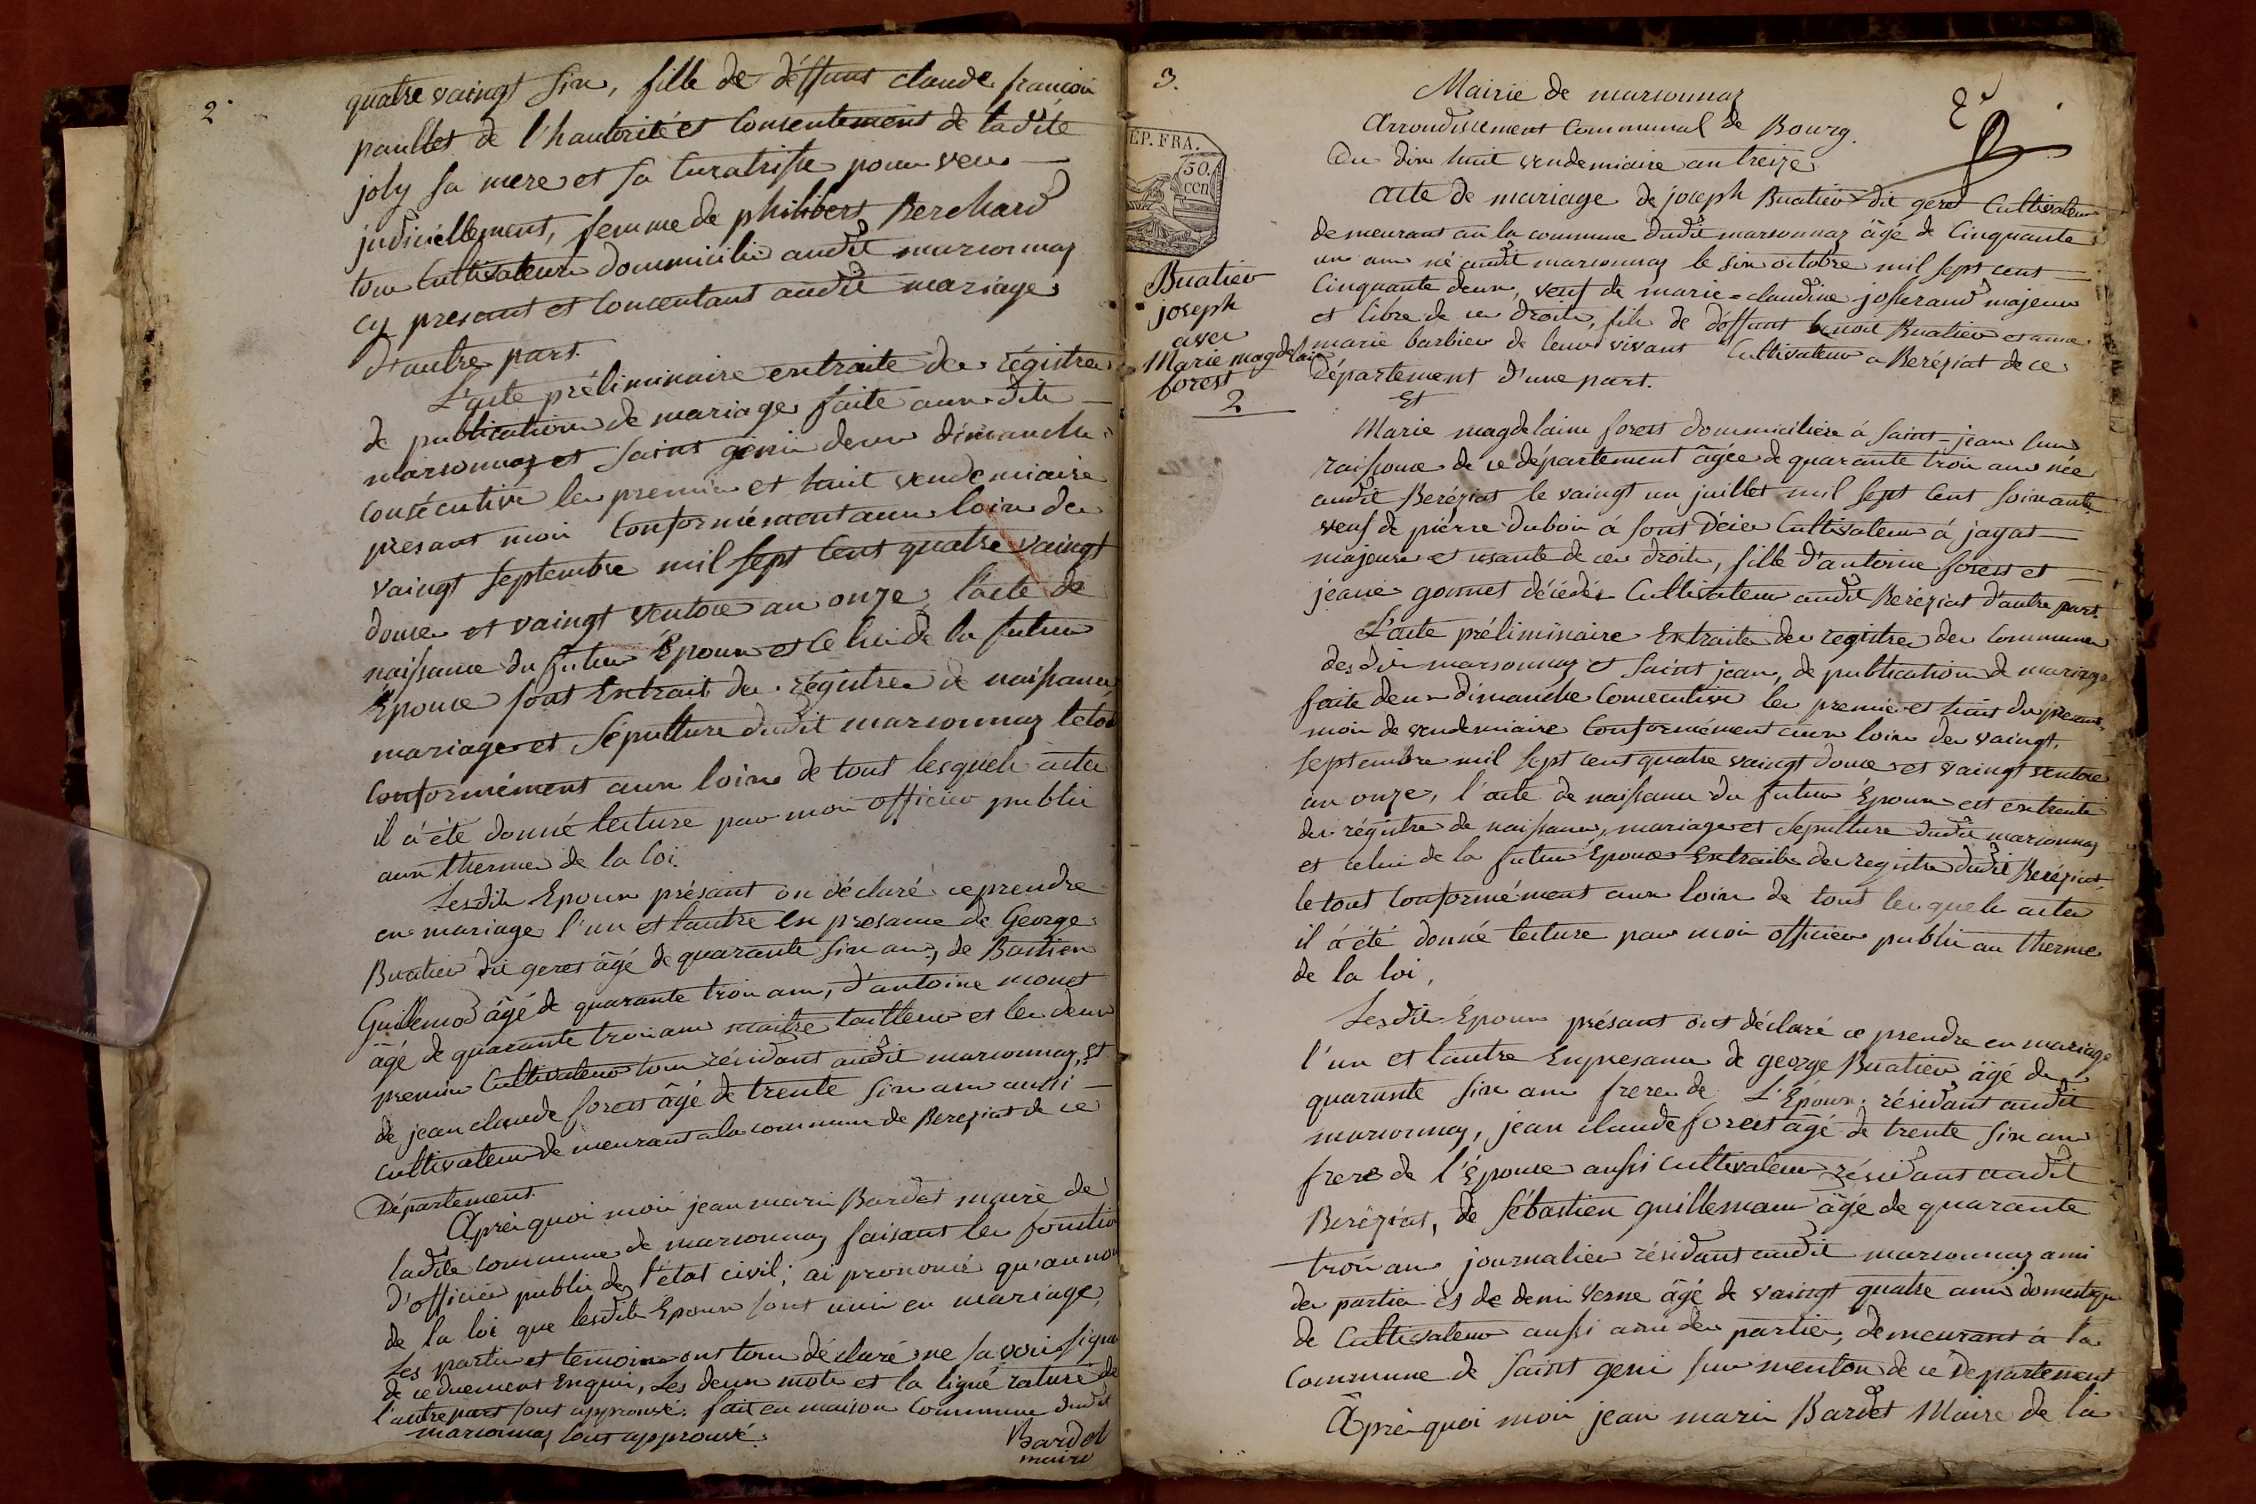 2.
quatre vaingt six, fille de déffunt claude françois
paullet de l'hautorité et Consentement de ladite
joly sa mere et sa Curatrisse pourveu
judiciellement, femme de philibert Berchard
tous Cultivateurs dommicilié audit marsonnaz
cy présent et Concentant audit mariage
d'autre part.
L'acte préliminaire extraite des régistres
de publications de mariage faite aux dits
marsonnaz et saint genis deux dimanches
consécutive les premier et huit vendemiaire
présant mois Conformément aux loix des
vaingt septembre mil sept Cent quatre vaingt
douze et vaingt ventose an onze, l'acte de
naissance du futur Epoux et Celui de la future
Epouse sont Extrait des régistres de naissance,
mariage et sépulture dudit marsonnaz letout
Conformément aux loix de tout lesquels actes
il à été donné lecture par moi officier public
aux therme de la loi.
Lesdits Epoux présant on déclaré ce prendre
en mariage l'un et lautre en presance de George
Buatier dit geret âgé de quarante six ans, de Bastien
Guillemod âgé de quarante trois ans, d'antoine monet
âgé de quarante trois ans maitre tailleur et les deux
premier Cultivateur tous résidant audit marsonnaz, et
de jean claude forest âgé de trente six ans aussi
cultivateur demeurant ala commune de Bereziat de ce
Département.
Après quoi moi jean marie Bardet maire de
ladite commune de marsonnaz faisant les fonctio
d'officier public de l'état civil; ai prononcé qu'au nom
de la loi que lesdits Epoux sont unis en mariage,
Les parties et temoins ont tous déclaré ne savoir signe
de ce duement Enquis, Les deux mots et la ligne raturé de
l'autre part sont approuvé. fait en maison Commune dudit
marsonnaz sont approuvé.
Bardet
maire
3.
EP. FRA.
50.
cen
Buatier
joseph
avec
Marie magdelaine
forest
2
Mairie de marsonnaz
Arrondissement Communal de Bourg.
Du dix huit vendemiaire an treize
Acte de mariage de joseph Buatier dit geret Cultivateur
demeurant en la commune dudit marsonnaz âgé de Cinquante
un ans né audit marsonnaz le six octobre mil sept cent
Cinquante deux, veuf de marie=claudine josserand majeur
et libre de ces droits, fils de déffunt benoit Buatier et anne
marie barbier de leurs vivant Cultivateur a Beréziat de ce
Département d'une part.
Et
Marie magdelaine forest dommiciliere à Saint-jean sur
raissouse de ce département âgée de quarante trois ans née
audit Beréziat le vaingt un juillet mil sept Cent soixante
veuf de pierre dubois à sont Décier Cultivateur à jayat
majeure et usante de ces droits, fille d'antoine forest et
jeane gonnet décédés Cultivateur audit Beréziat d'autre part.
L'acte préliminaire Extraite des registres des Communes
des dits marsonnaz et saint jean, de publication de mariage
faite deux dimanche Consécutive les premier et huit du présant
mois de vendemiaire Conformément aux loix des vaingt
septembre mil sept cent quatre vaingt douze et vaingt ventose
an onze, l'acte de naissance du futur Epoux est extraite
des régistre de naissance, mariage et sepulture dudit marsonnaz
et celui de la future Epouse Extraite des registre dudit Beréziat,
le tout Conformément aux loix de tout les quels actes
il à été donné lecture par moi officier public au therme
de la loi,
Lesdit Epoux présant ont déclaré ce prendre en mariage
l'un et lautre Enpresance de george Buatier âgé de
quarante six ans frere de L'Epoux, résidant audit
marsonnaz, jean claude forest âgé de trente six ans
frere de l'Epouse aussi cultivateur résidant audit
Beréziat, de sébastien guillemaur âgé de quarante
trois ans journalier résidant audit marsonnaz ami
des parties es de deni Verne âgé de vaingt quatre ans domestique
de Cultivateur aussi ami des parties, demeurant à la
Commune de saint geni sur menton de ce Département
Après quoi moi jean marie Bardet Maire de la